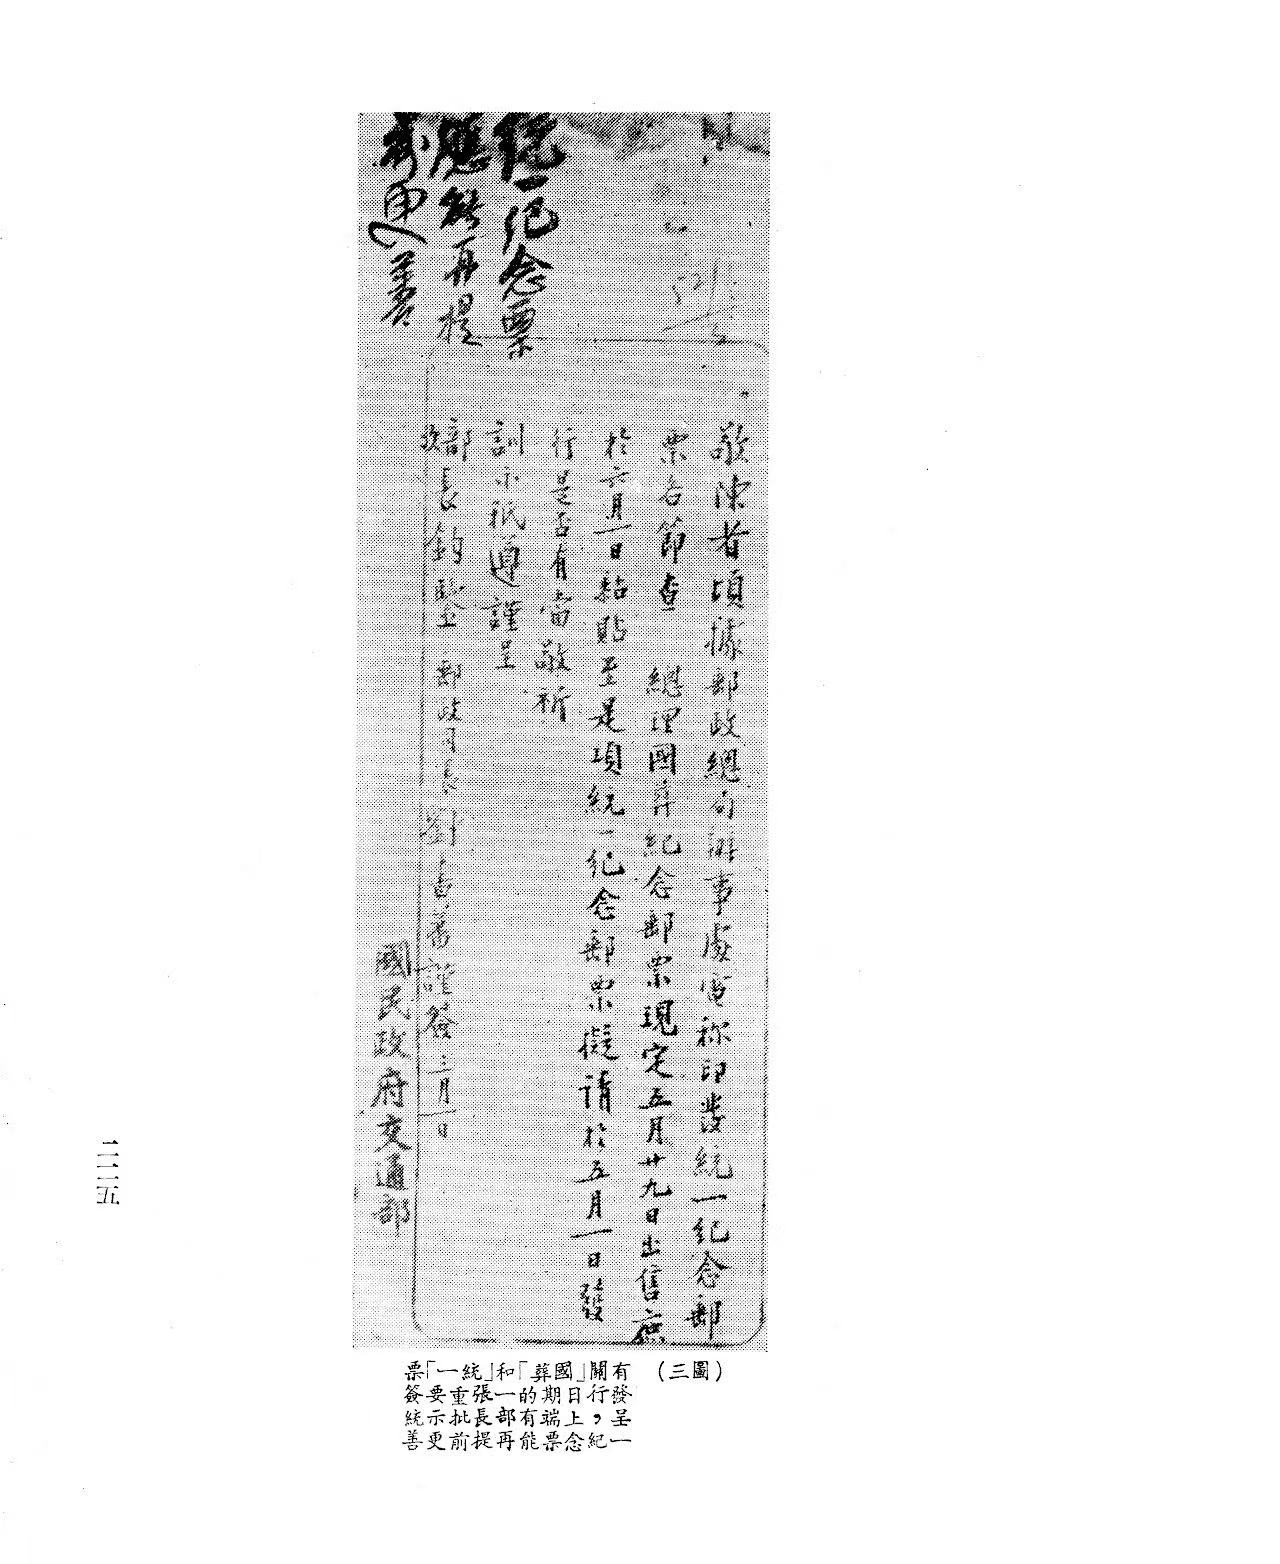 統一紀念票
應能再提
前更善
敬陳者頃據郵政總局辦事處電称印發統一紀念郵
票各節查 總理國葬紀念郵票現定五月廿九日出售庶
於六月一日粘貼至是項統一紀念郵票擬請於五月一日發
行是否有當敬祈
訓示祇遵謹呈
部長鈞鑒 郵政司長劉書蕃謹簽三月一日
國民政府交通部
(圖三)
有關「國葬」和「統一」票
發行日期的一張重要簽
呈,上端有部長批示統
一紀念票能再提前更善
二二二五